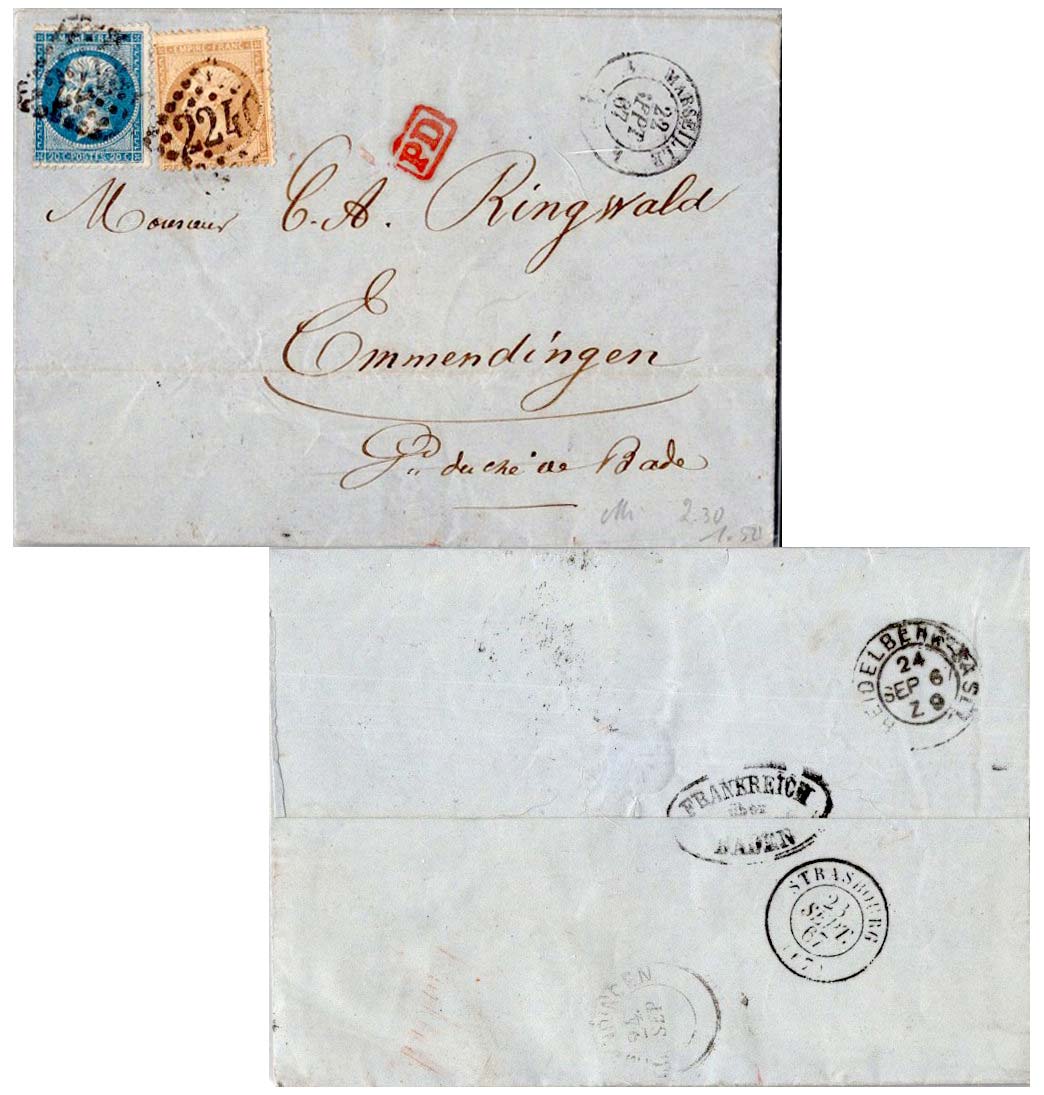 EMPIRE FRANC
20 C POSTES 20 C
2240
PD
MARSEILLE
22
SEPT
67
Monsieur C. A. Ringwald
Emmendingen
Gd duché de Bade
2.30
1.50
HEIDELBERG-BASEL
24
SEP 6
Z 9
FRANKREICH
über
BADEN
STRASBOURG
23
SEPT.
67
(67)
24
SEP